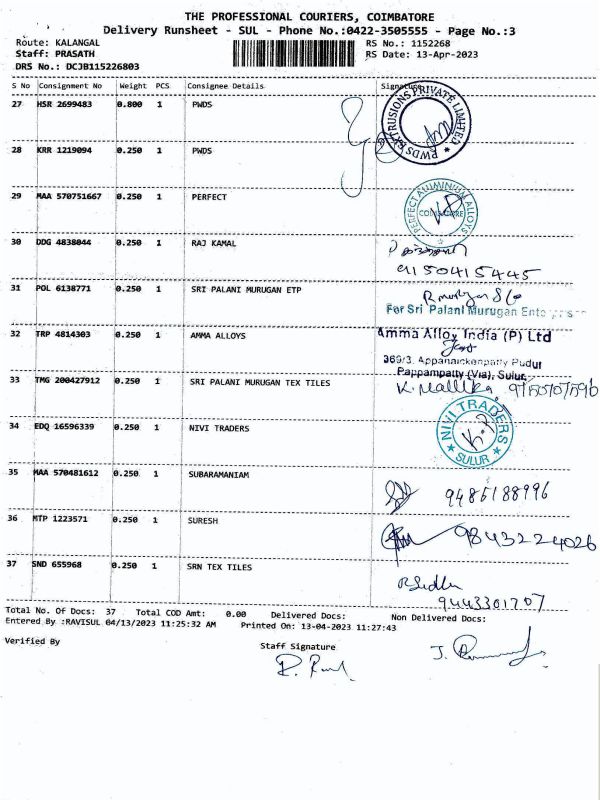 THE PROFESSIONAL COURIERS, COIMBATORE
Delivery Runsheet - SUL - Phone No.:0422-3505555 - Page No.:3
Route: KALANGAL
Staff: PRASATH
DRS No.: DCJB115226803
RS No.: 1152268
RS Date: 13-Apr-2023
S No Consignment No Weight PCS Consignee Details Signature
27 HSR 2699483 0.800 1 PWDS
PWDS EXTRUSIONS PRIVATE LIMITED
28 KRR 1219094 0.250 1 PWDS
29 MAA 570751667 0.250 1 PERFECT
PERFECT ALUMINIUM ALLOYS
COIMBATORE
30 DDG 4838044 0.250 1 RAJ KAMAL
9150415445
31 POL 6138771 0.250 1 SRI PALANI MURUGAN ETP
For Sri Palani Murugan Enterprises
32 TRP 4814303 0.250 1 AMMA ALLOYS
Amma Alloy India (P) Ltd
369/3, Appanaickenpatty Pudur
Pappampatty (Via), Sulur.
33 TMG 200427912 0.250 1 SRI PALANI MURUGAN TEX TILES
K. Mallika
34 EDQ 16596339 0.250 1 NIVI TRADERS
NIVI TRADERS
SULUR
35 MAA 570481612 0.250 1 SUBARAMANIAM
9486188996
36 MTP 1223571 0.250 1 SURESH
9843224026
37 SND 655968 0.250 1 SRN TEX TILES
9443301707
Total No. Of Docs: 37 Total COD Amt: 0.00 Delivered Docs: Non Delivered Docs:
Entered By :RAVISUL 04/13/2023 11:25:32 AM Printed On: 13-04-2023 11:27:43
Verified By
Staff Signature